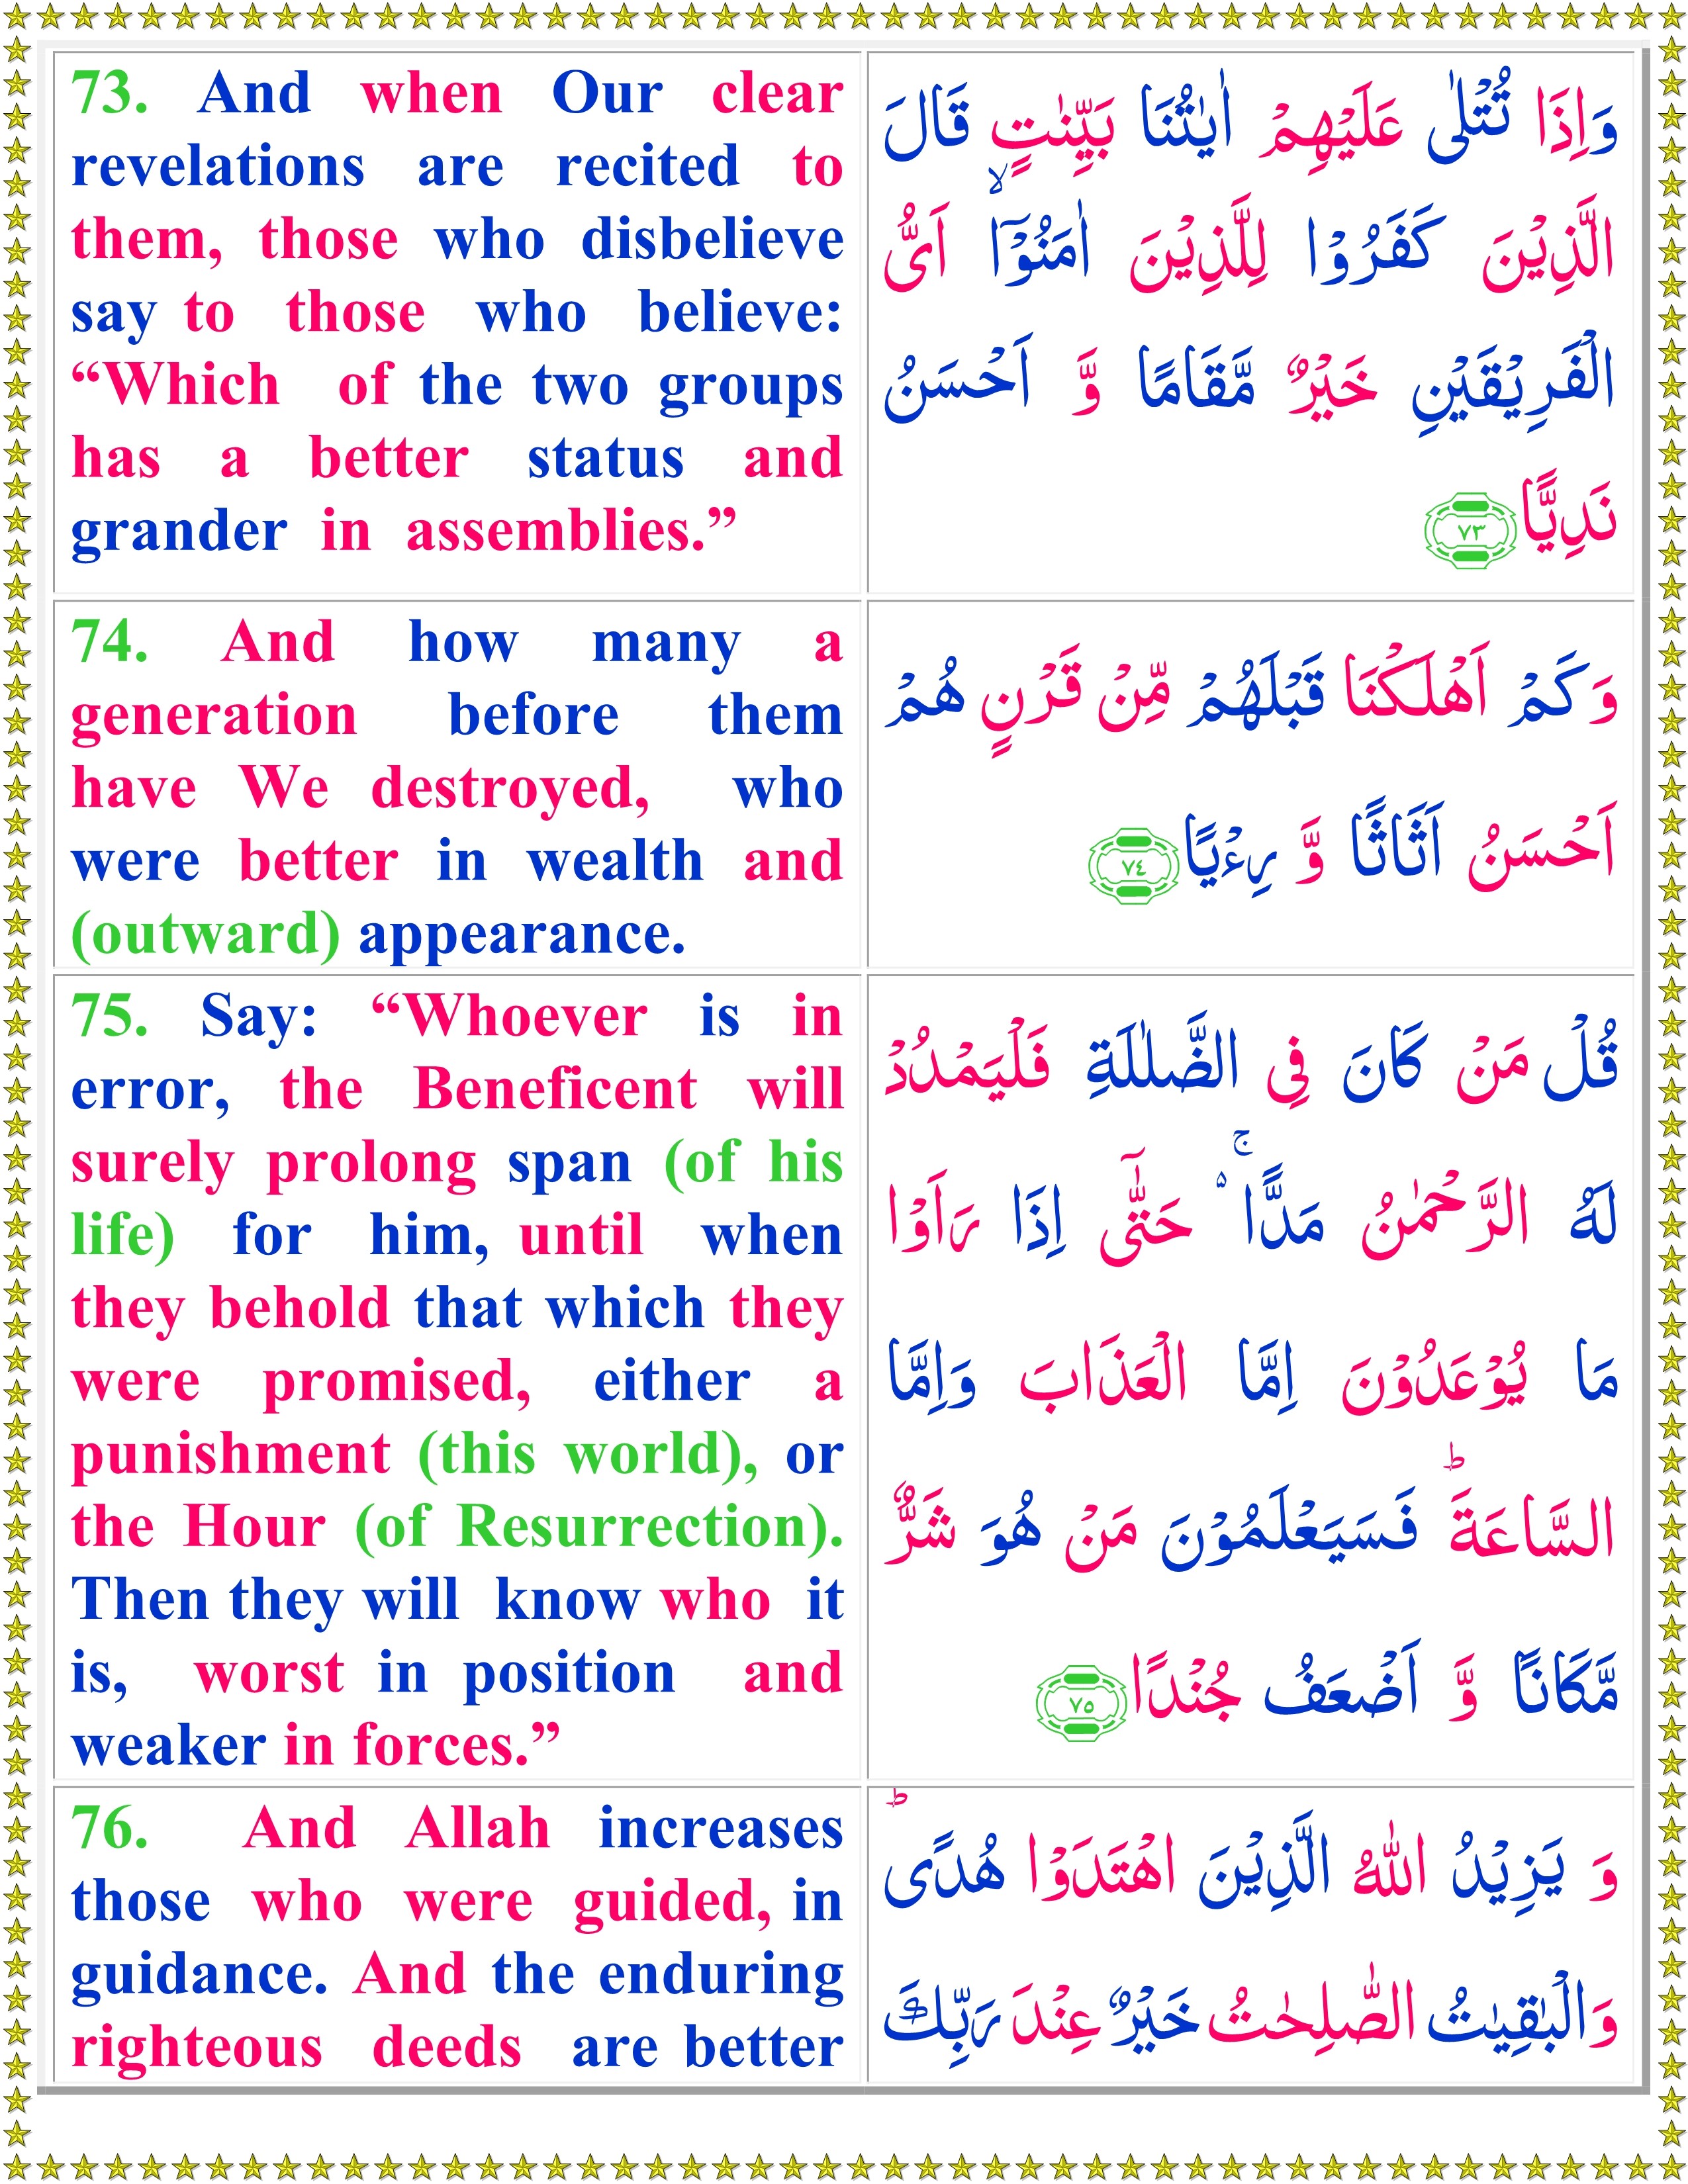 73. And when Our clear
revelations are recited to
them, those who disbelieve
say to those who believe:
“Which of the two groups
has a better status and
grander in assemblies.”
وَاِذَا تُتْلٰى عَلَيْهِمْ اٰيٰتُنَا بَيِّنٰتٍ قَالَ
الَّذِيْنَ كَفَرُوْا لِلَّذِيْنَ اٰمَنُوْۤا ۙ اَىُّ
الْفَرِيْقَيْنِ خَيْرٌ مَّقَامًا وَّ اَحْسَنُ
نَدِيًّا ٧٣
74. And how many a
generation before them
have We destroyed, who
were better in wealth and
(outward) appearance.
وَكَمْ اَهْلَكْنَا قَبْلَهُمْ مِّنْ قَرْنٍ هُمْ
اَحْسَنُ اَثَاثًا وَّ رِءْيًا ٧٤
75. Say: “Whoever is in
error, the Beneficent will
surely prolong span (of his
life) for him, until when
they behold that which they
were promised, either a
punishment (this world), or
the Hour (of Resurrection).
Then they will know who it
is, worst in position and
weaker in forces.”
قُلْ مَنْ كَانَ فِى الضَّلٰلَةِ فَلْيَمْدُدْ
لَهُ الرَّحْمٰنُ مَدًّا ۚ حَتّٰٓى اِذَا رَاَوْا
مَا يُوْعَدُوْنَ اِمَّا الْعَذَابَ وَاِمَّا
السَّاعَةَ ؕ فَسَيَعْلَمُوْنَ مَنْ هُوَ شَرٌّ
مَّكَانًا وَّ اَضْعَفُ جُنْدًا ٧٥
76. And Allah increases
those who were guided, in
guidance. And the enduring
righteous deeds are better
وَ يَزِيْدُ اللّٰهُ الَّذِيْنَ اهْتَدَوْا هُدًى ؕ
وَالْبٰقِيٰتُ الصّٰلِحٰتُ خَيْرٌ عِنْدَ رَبِّكَ